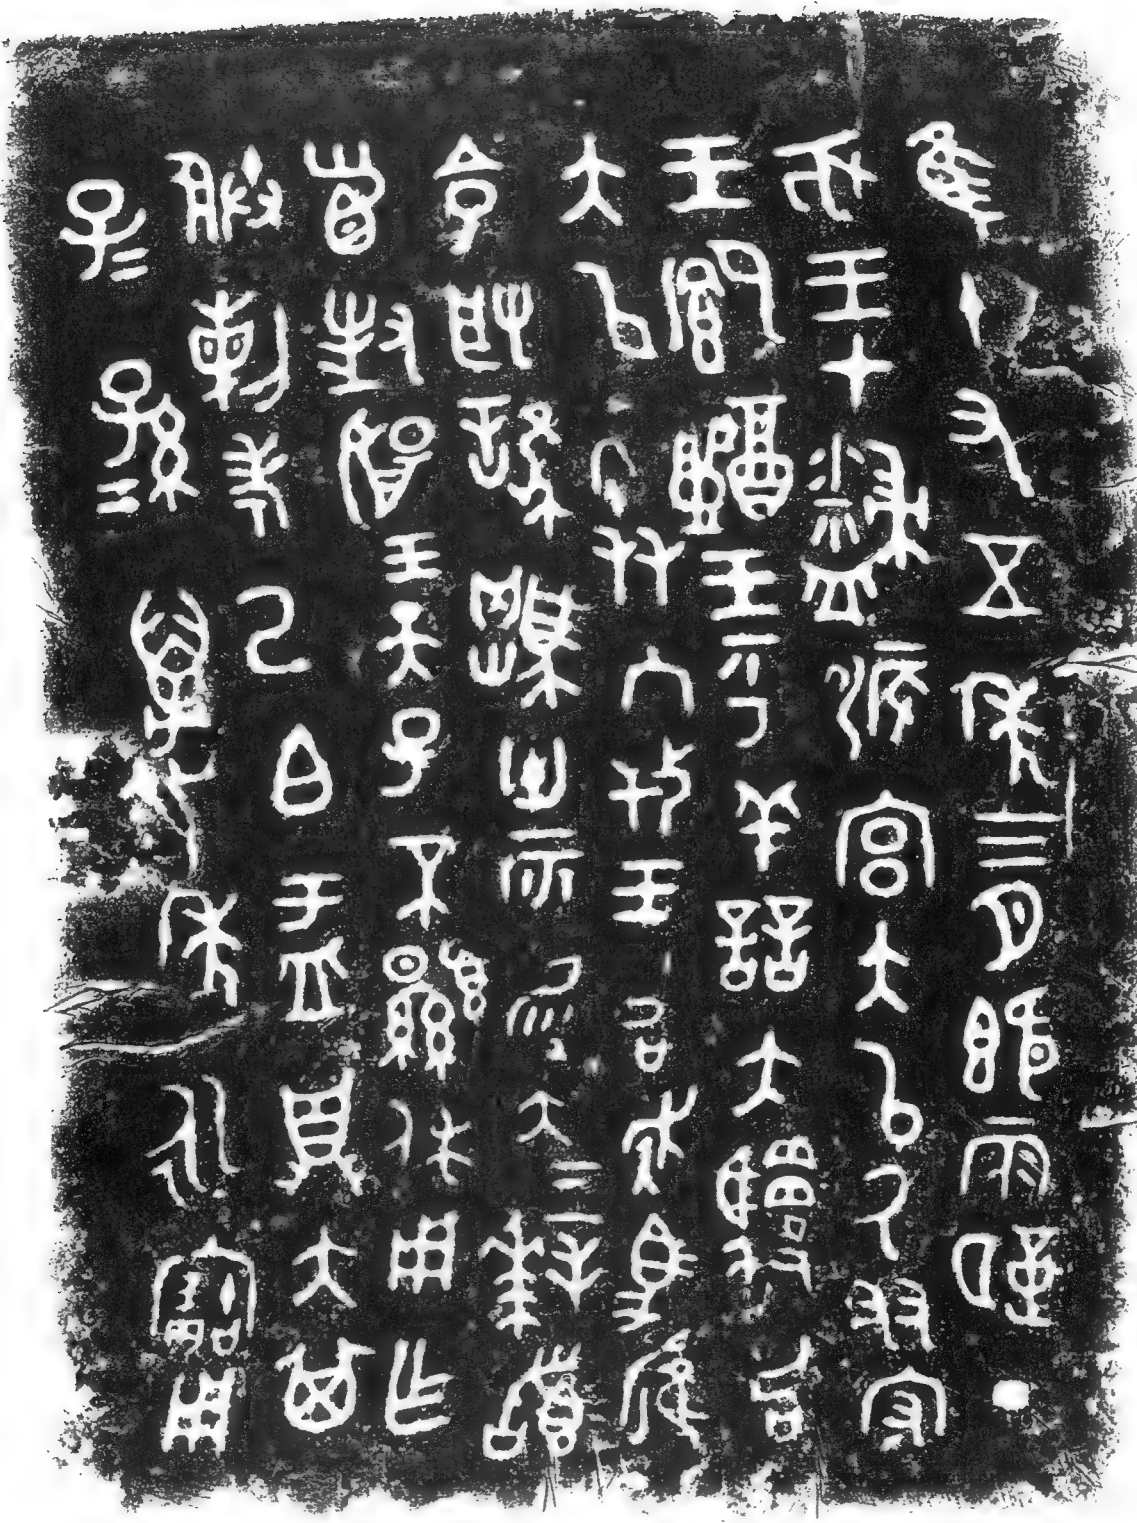 隹十又五年三月既霸丁
亥王才𩛥侲宮大以氒友守
王鄉醴王乎善夫騣召
大以氒友入攼王召走馬雁
令取誰騆卅二匹易大大拜𩒨
首對揚王天子不顯休用乍
朕剌考己白盂鼎大其
子子孫孫萬年永寶用